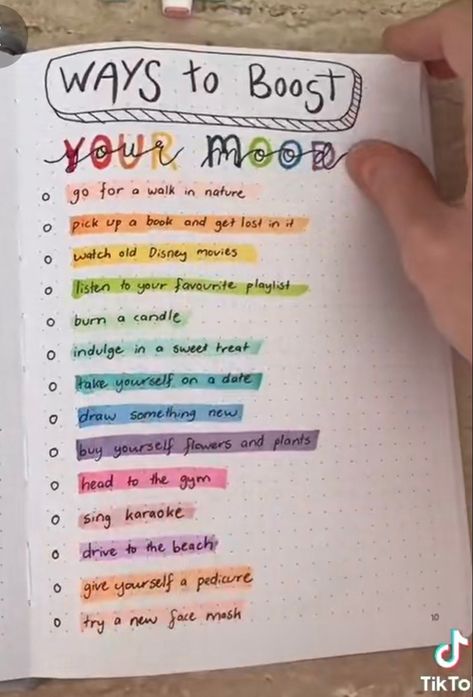 WAYS to BOOST
YOUR MOOD
go for a walk in nature
pick up a book and get lost in it
watch old Disney movies
listen to your favourite playlist
burn a candle
indulge in a sweet treat
take yourself on a date
draw something new
buy yourself flowers and plants
head to the gym
sing karaoke
drive to the beach
give yourself a pedicure
try a new face mask
10
TikTo